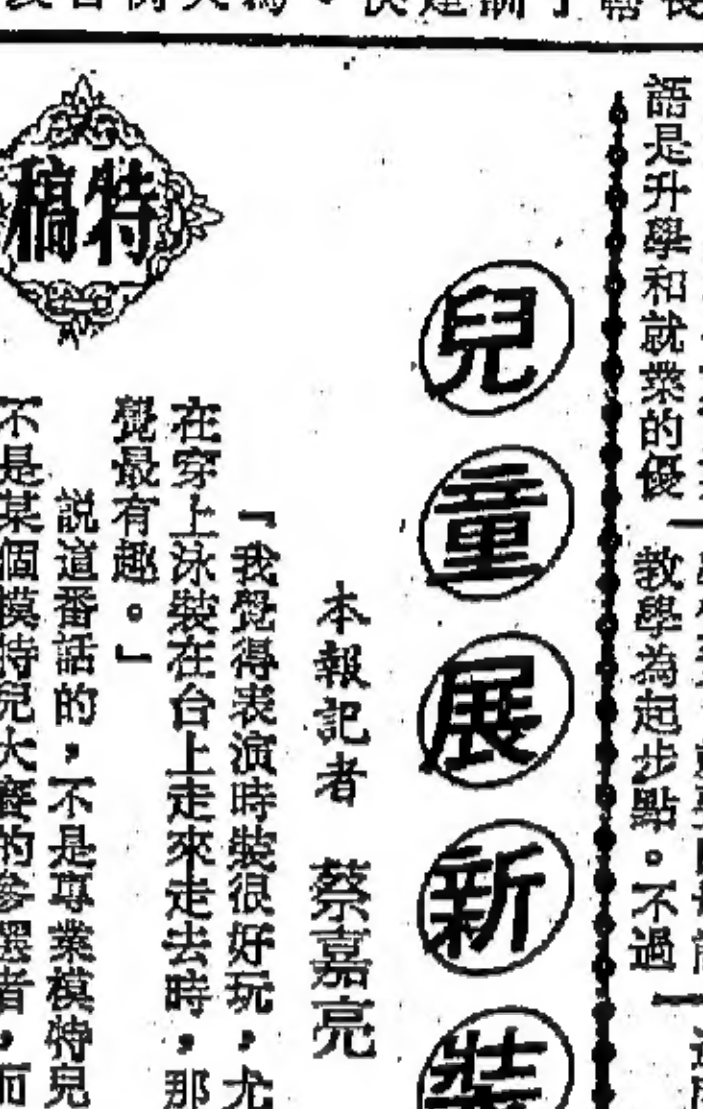 語是升學和就業的優
教學為起步點。不過
兒童展新裝
本報記者 蔡嘉亮
特稿
『我覺得表演時裝很好玩，尤
在穿上泳裝在台上走來走去時，那
覺最有趣。』
說這番話的，不是專業模特兒
不是某個模特兒大賽的參選者，而